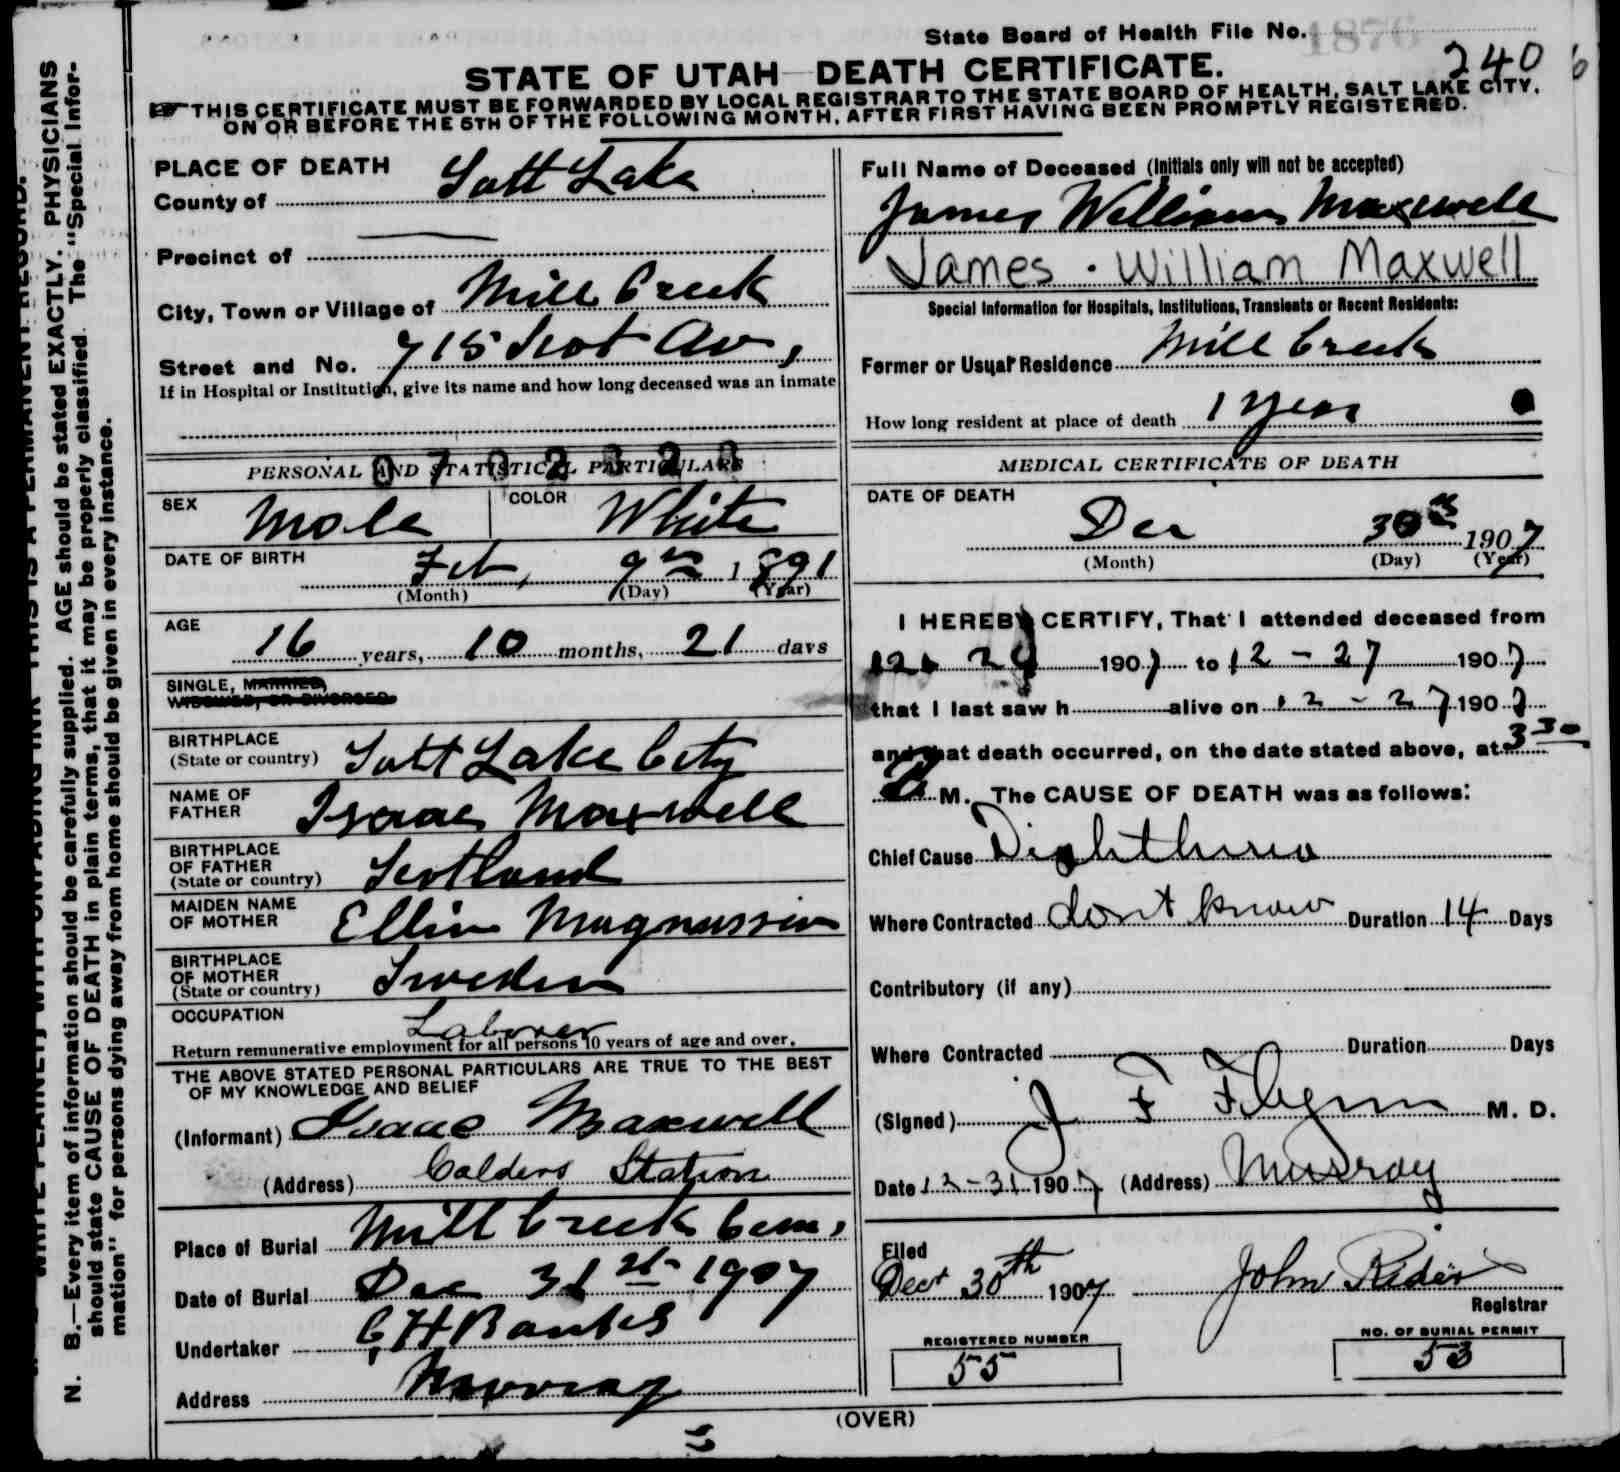 State Board of Health File No. 1876
2406
STATE OF UTAH—DEATH CERTIFICATE.
THIS CERTIFICATE MUST BE FORWARDED BY LOCAL REGISTRAR TO THE STATE BOARD OF HEALTH, SALT LAKE CITY,
ON OR BEFORE THE 5TH OF THE FOLLOWING MONTH, AFTER FIRST HAVING BEEN PROMPTLY REGISTERED.
PLACE OF DEATH
County of Salt Lake
Precinct of
City, Town or Village of Mill Creek
Street and No. 715 Scot Av,
If in Hospital or Institution, give its name and how long deceased was an inmate
0702323
PERSONAL AND STATISTICAL PARTICULARS
SEX Male COLOR White
DATE OF BIRTH Feb, 9th 1891
(Month) (Day) (Year)
AGE 16 years, 10 months, 21 days
SINGLE, MARRIED,
WIDOWED, OR DIVORCED
BIRTHPLACE
(State or country) Salt Lake City
NAME OF
FATHER Isaac Maxwell
BIRTHPLACE
OF FATHER
(State or country) Scotland
MAIDEN NAME
OF MOTHER Ellin Magnussin
BIRTHPLACE
OF MOTHER
(State or country) Sweden
OCCUPATION
Laborer
Return remunerative employment for all persons 10 years of age and over.
THE ABOVE STATED PERSONAL PARTICULARS ARE TRUE TO THE BEST
OF MY KNOWLEDGE AND BELIEF
(Informant) Isaac Maxwell
(Address) Calders Station
Place of Burial Mill Creek Cem,
Date of Burial Dec 31st 1907
Undertaker C H Banks
Address Murray
Full Name of Deceased (Initials only will not be accepted)
James William Maxwell
James . William Maxwell
Special Information for Hospitals, Institutions, Transients or Recent Residents:
Former or Usual Residence Mill Creek
How long resident at place of death 1 year
MEDICAL CERTIFICATE OF DEATH
DATE OF DEATH
Dec 30th 1907
(Month) (Day) (Year)
I HEREBY CERTIFY, That I attended deceased from
12 1907 to 12 - 27 1907
that I last saw h alive on 12 - 27 1907
and that death occurred, on the date stated above, at 3 30
M. The CAUSE OF DEATH was as follows:
Chief Cause Diphtheria
Where Contracted dont know Duration 14 Days
Contributory (if any)
Where Contracted Duration Days
(Signed) J F Flynn M. D.
Date 12-31 1907 (Address) Murray
Filed
Dec 30th 1907 John Rider
Registrar
REGISTERED NUMBER
55
NO. OF BURIAL PERMIT
53
(OVER)
N. B.—Every item of information should be carefully supplied. AGE should be stated EXACTLY. PHYSICIANS
should state CAUSE OF DEATH in plain terms, that it may be properly classified. The "Special Infor-
mation" for persons dying away from home should be given in every instance.
WRITE PLAINLY, WITH UNFADING INK—THIS IS A PERMANENT RECORD.